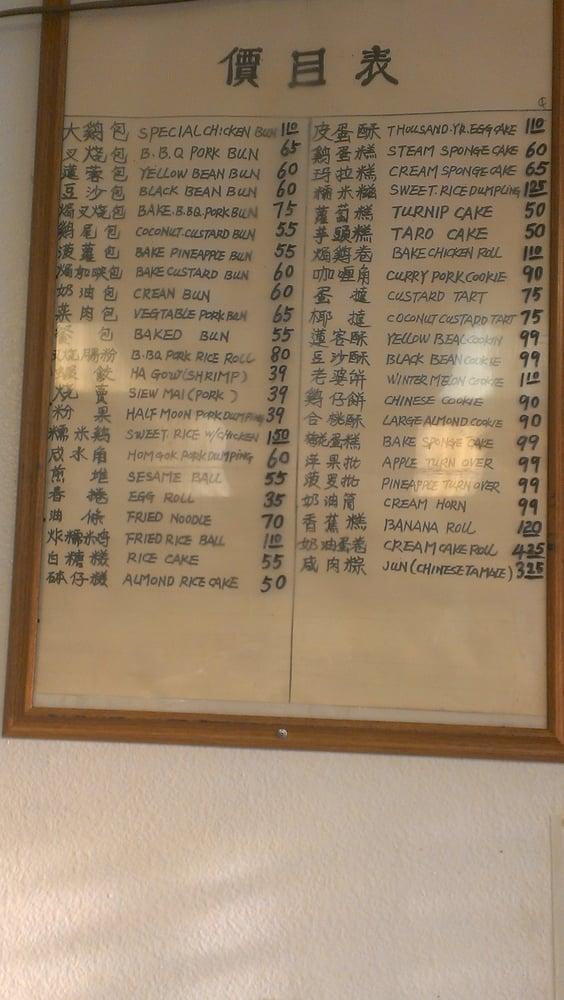 價目表
¢
大鷄包 SPECIAL CHICKEN BUN 1 10
叉烧包 B.B.Q PORK BUN 65
蓮蓉包 YELLOW BEAN BUN 60
豆沙包 BLACK BEAN BUN 60
焗叉烧包 BAKE.B.B.Q.PORK BUN 75
鷄尾包 COCONUT.CUSTARD BUN 55
菠蘿包 BAKE PINEAPPLE BUN 55
焗加映包 BAKE CUSTARD BUN 60
奶油包 CREAN BUN 60
菜肉包 VEGTABLE PORK BUN 65
餐包 BAKED BUN 55
烧腸粉 B.BQ PORK RICE ROLL 80
餃 HA GOW (SHRIMP) 39
烧賣 SIEW MAI (PORK) 39
粉果 HALF MOON PORK DUMPING 39
糯米鷄 SWEET RICE W/CHICKEN 1 50
咸水角 HOM GOK PORK DUMPING 60
煎堆 SESAME BALL 55
春捲 EGG ROLL 35
油條 FRIED NOODLE 70
炸糯米鸡 FRIED RICE BALL 1 10
白糖糕 RICE CAKE 55
砵仔糕 ALMOND RICE CAKE 50
皮蛋酥 THOUSAND.YR.EGG CAKE 1 10
鷄蛋糕 STEAM SPONGE CAKE 60
玛拉糕 CREAM SPONGE CAKE 65
糯米糍 SWEET.RICE DUMPLING 1 25
蘿蔔糕 TURNIP CAKE 50
芋頭糕 TARO CAKE 50
焗鷄卷 BAKE CHICKEN ROLL 1 10
咖喱角 CURRY PORK COOKIE 90
蛋撻 CUSTARD TART 75
椰撻 COCONUT CUSTADD TART 75
蓮容酥 YELLOW BEAL COOKIN 99
豆沙酥 BLACK BEAN COOKIE 99
老婆餅 WINTER MELON COOKIE 1 10
鷄仔餅 CHINESE COOKIE 90
合桃酥 LARGE ALMOND COOKIE 90
蛋糕 BAKE SPONGE CAKE 99
苹果批 APPLE TURN OVER 99
菠萝批 PINEAPPLE TURN OVER 99
奶油筒 CREAM HORN 99
香蕉糕 BANANA ROLL 1 20
奶油蛋卷 CREAM CAKE ROLL 4 25
咸肉粽 JUN (CHINESE TAMALE) 3 25